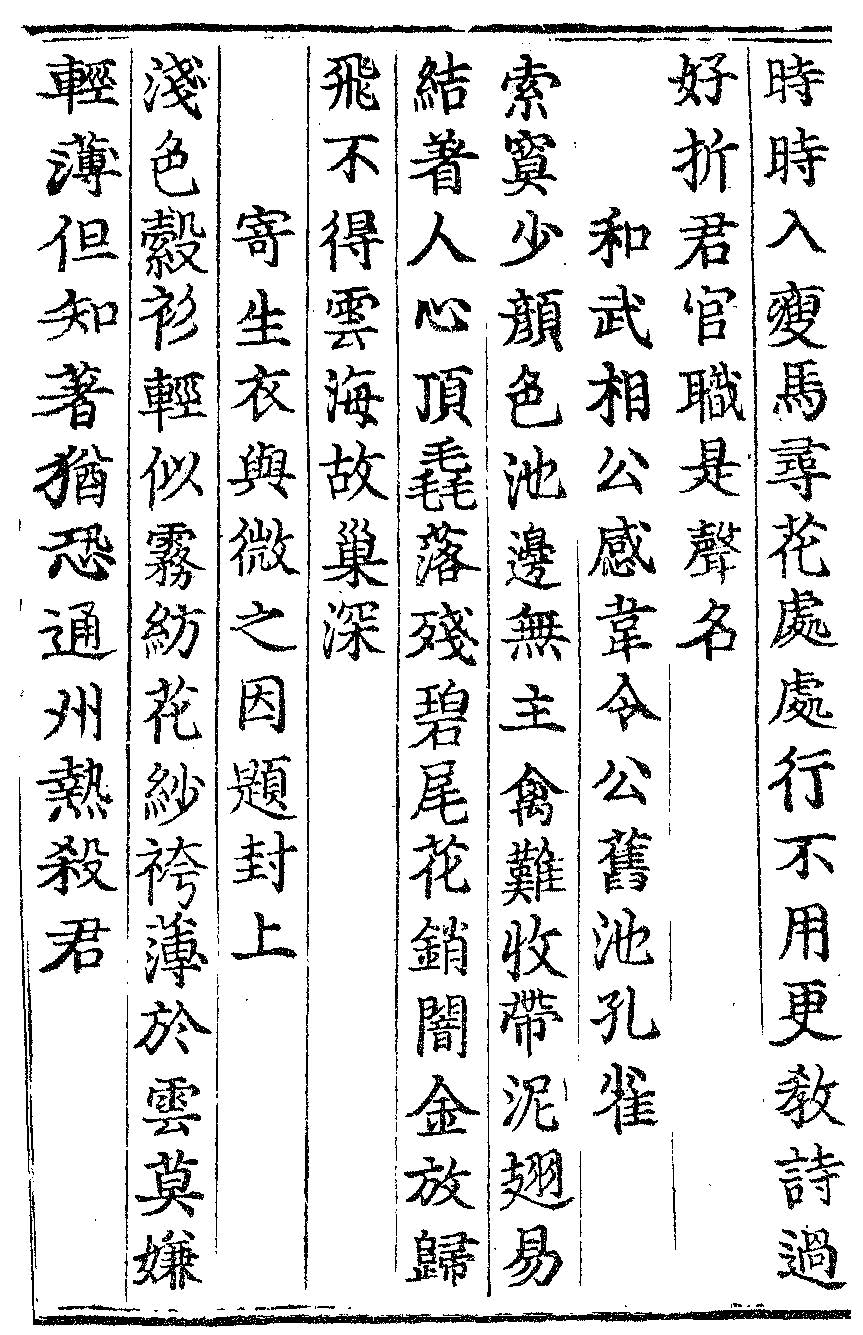 時時入瘦馬尋花處處行不用更教詩過
好折君官職是聲名
和武相公感韋令公舊池孔雀
索寞少顏色池邊無主禽難收帶泥翅易
結著人心頂毳落殘碧尾花銷闇金放歸
飛不得雲海故巢深
寄生衣與微之因題封上
淺色縠衫輕似霧紡花紗袴薄於雲莫嫌
輕薄但知著猶恐通州熱殺君